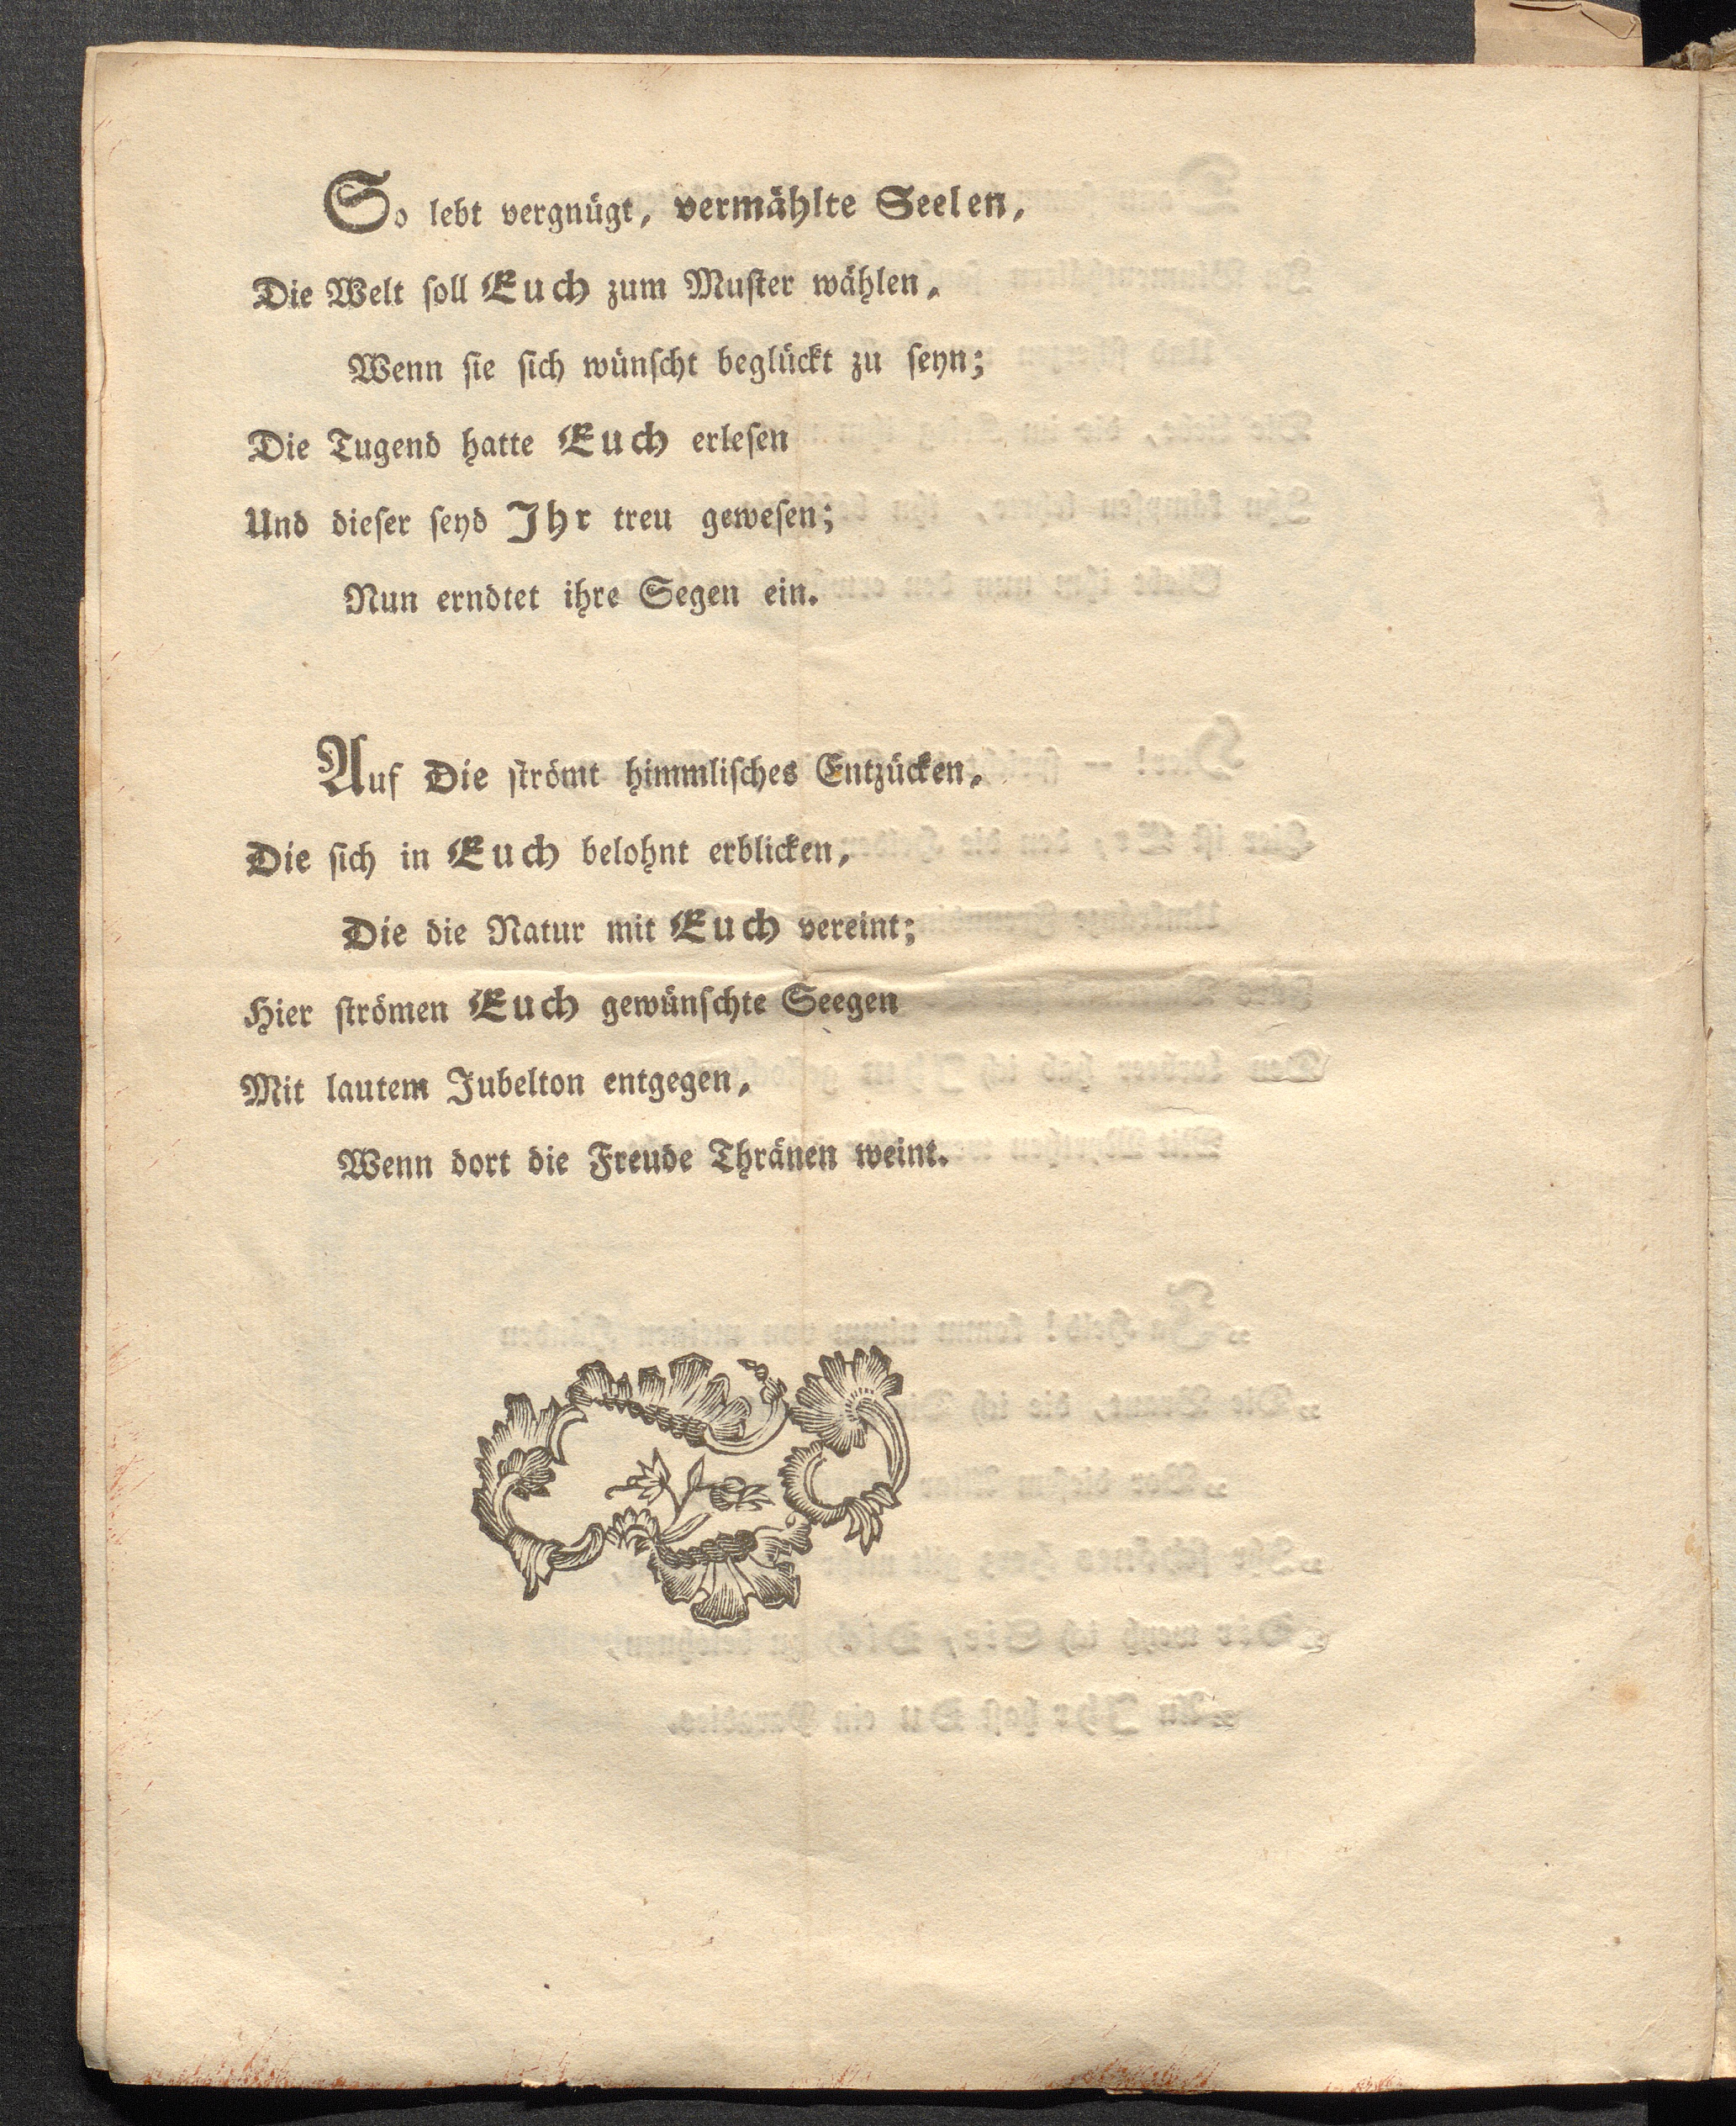 So lebt vergnügt, vermählte Seelen,
Die Welt ſoll Euch zum Muſter wählen,
Wenn ſie ſich wünſcht beglückt zu ſeyn;
Die Tugend hatte Euch erleſen
Und dieſer ſeyd Ihr treu geweſen;
Nun erndtet ihre Segen ein.
Auf Die ſtrömt himmliſches Entzücken,
Die ſich in Euch belohnt erblicken,
Die die Natur mit Euch vereint;
Hier ſtrömen Euch gewünſchte Seegen
Mit lautem Jubelton entgegen,
Wenn dort die Freude Thränen weint.